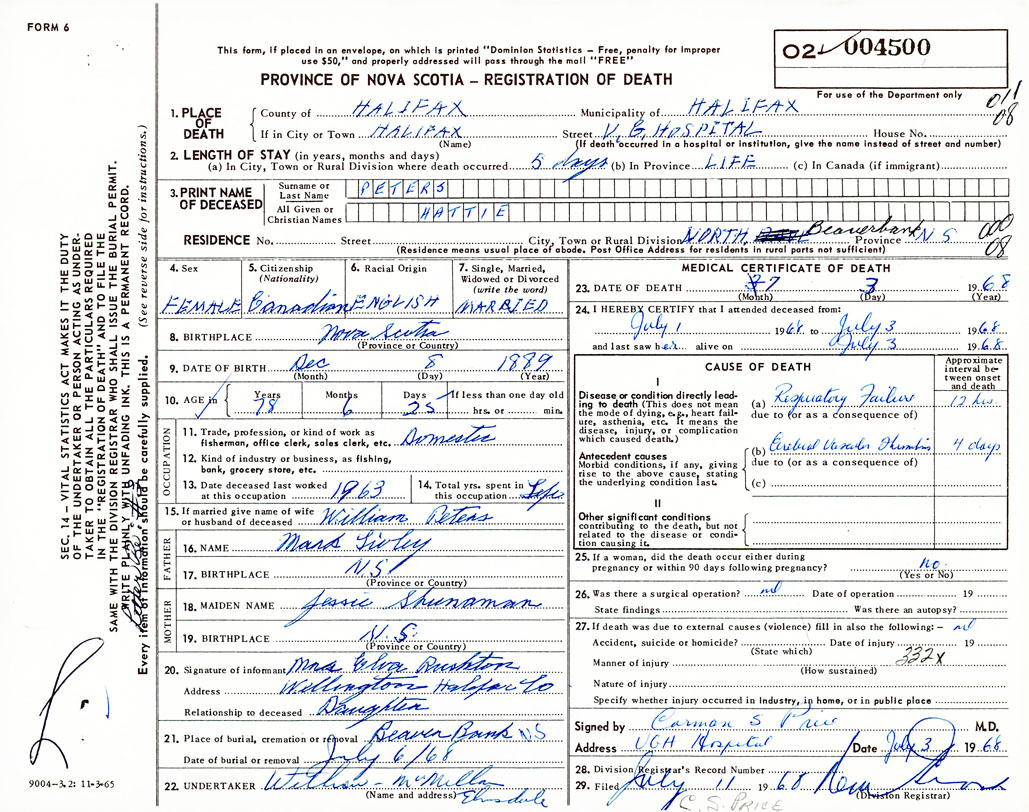 FORM 6
This form, if placed in an envelope, on which is printed "Dominion Statistics – Free, penalty for improper
use $50," and properly addressed will pass through the mail "FREE"
PROVINCE OF NOVA SCOTIA – REGISTRATION OF DEATH
02 004500
For use of the Department only
011
08
1. PLACE OF DEATH
County of HALIFAX Municipality of HALIFAX
If in City or Town HALIFAX Street V. G. HOSPITAL House No.
(Name) (If death occurred in a hospital or institution, give the name instead of street and number)
2. LENGTH OF STAY (in years, months and days)
(a) In City, Town or Rural Division where death occurred 5 days (b) In Province LIFE (c) In Canada (if immigrant)
3. PRINT NAME OF DECEASED
Surname or Last Name PETERS
All Given or Christian Names HATTIE
RESIDENCE No. Street City, Town or Rural Division NORTH Beaverbank Province N S
000
08
(Residence means usual place of abode. Post Office Address for residents in rural parts not sufficient)
4. Sex FEMALE
5. Citizenship (Nationality) Canadian
6. Racial Origin ENGLISH
7. Single, Married, Widowed or Divorced (write the word) MARRIED
8. BIRTHPLACE Nova Scotia
(Province or Country)
9. DATE OF BIRTH Dec 8 1889
(Month) (Day) (Year)
10. AGE in Years 78 Months 6 Days 25 If less than one day old hrs. or min.
OCCUPATION
11. Trade, profession, or kind of work as
fisherman, office clerk, sales clerk, etc. Domestic
12. Kind of industry or business, as fishing,
bank, grocery store, etc.
13. Date deceased last worked at this occupation 1963
14. Total yrs. spent in this occupation Life
15. If married give name of wife
or husband of deceased William Peters
FATHER
16. NAME Mark
17. BIRTHPLACE N.S.
(Province or Country)
MOTHER
18. MAIDEN NAME Jessie Shunaman
19. BIRTHPLACE N.S.
(Province or Country)
20. Signature of informant Mrs Elva Rushton
Address Wellington Halifax Co
Relationship to deceased Daughter
21. Place of burial, cremation or removal Beaver Bank N.S
Date of burial or removal July 6/68
22. UNDERTAKER
(Name and address) Elmsdale
MEDICAL CERTIFICATE OF DEATH
23. DATE OF DEATH 7 3 1968
(Month) (Day) (Year)
24. I HEREBY CERTIFY that I attended deceased from:
July 1 1968 to July 3 1968
and last saw her alive on July 3 1968
CAUSE OF DEATH
Approximate interval between onset and death
I
Disease or condition directly leading to death (This does not mean the mode of dying, e.g., heart failure, asthenia, etc. It means the disease, injury, or complication which caused death.)
(a) Respiratory Failure 12 hrs.
due to (or as a consequence of)
Antecedent causes
Morbid conditions, if any, giving rise to the above cause, stating the underlying condition last.
(b) Cerebral Vascular Thrombosis 4 days
due to (or as a consequence of)
(c)
II
Other significant conditions
contributing to the death, but not related to the disease or condition causing it.
25. If a woman, did the death occur either during
pregnancy or within 90 days following pregnancy? no.
(Yes or No)
26. Was there a surgical operation? nil Date of operation 19
State findings Was there an autopsy?
27. If death was due to external causes (violence) fill in also the following:– nil
Accident, suicide or homicide? Date of injury 19
(State which)
Manner of injury 332x
(How sustained)
Nature of injury
Specify whether injury occurred in industry, in home, or in public place
Signed by Carman S Price M.D.
Address VGH Hospital Date July 3 1968
28. Division Registrar's Record Number
29. Filed July 11 1968
(Division Registrar)
C. S. PRICE
SEC. 14 – VITAL STATISTICS ACT MAKES IT THE DUTY
OF THE UNDERTAKER OR PERSON ACTING AS UNDERTAKER TO OBTAIN ALL THE PARTICULARS REQUIRED
IN THE "REGISTRATION OF DEATH" AND TO FILE THE
SAME WITH THE DIVISION REGISTRAR WHO SHALL ISSUE THE BURIAL PERMIT.
WRITE PLAINLY WITH UNFADING INK. THIS IS A PERMANENT RECORD.
Every item of information should be carefully supplied. (See reverse side for instructions.)
9004-3.2: 11-3-65